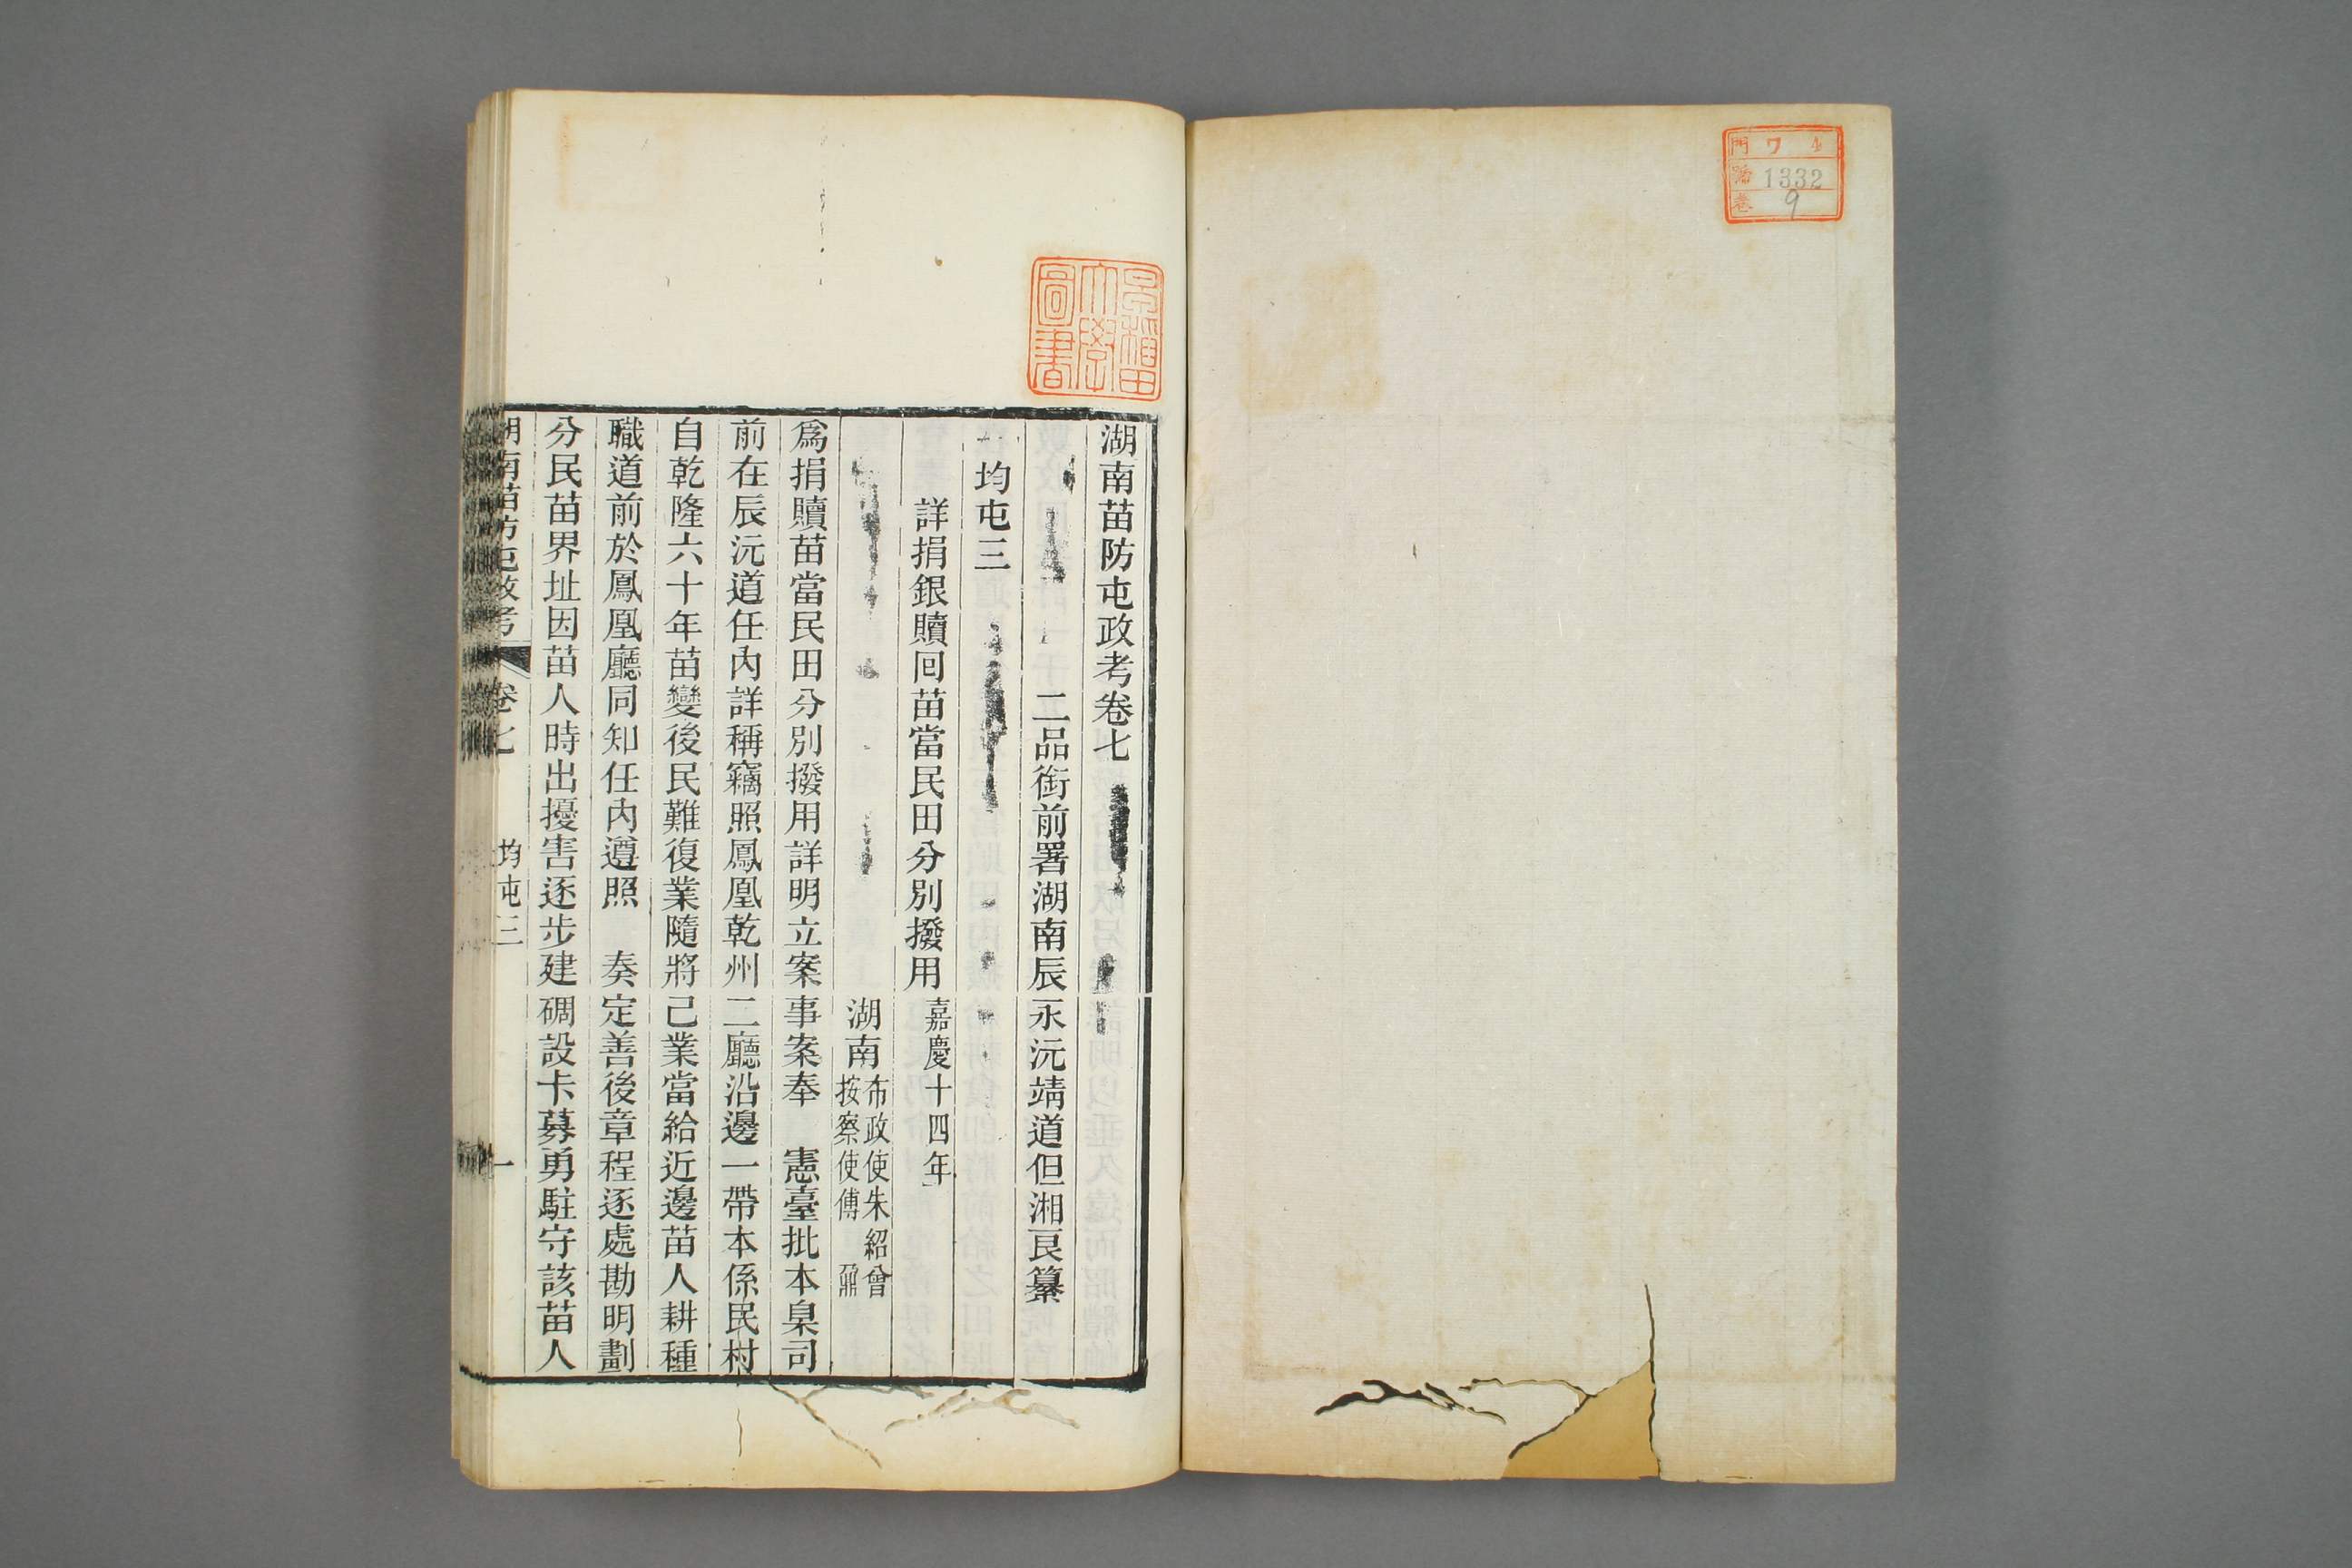 門 ワ 4
號 1332
卷 9
早稲田大學圖書
湖南苗防屯政考卷七
二品銜前署湖南辰永沅靖道但湘良纂
均屯三
詳捐銀贖囘苗當民田分別撥用 嘉慶十四年
湖南布政使朱紹曾
按察使傅鼐
爲捐贖苗當民田分別撥用詳明立案事案奉 憲臺批本臬司
前在辰沅道任內詳稱竊照鳳凰乾州二廳沿邊一帶本係民村
自乾隆六十年苗變後民難復業隨將己業當給近邊苗人耕種
職道前於鳳凰廳同知任內遵照 奏定善後章程逐處勘明劃
分民苗界址因苗人時出擾害逐步建碉設卡募勇駐守該苗人
湖南苗防屯政考 卷七 均屯三 一